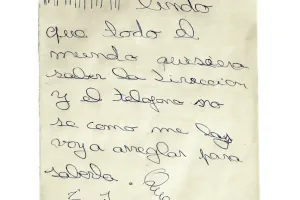 lindo
que todo el
mundo quisiera
saber la direccion
y el telefono no
se como me las
voy a arreglar para
saberla.